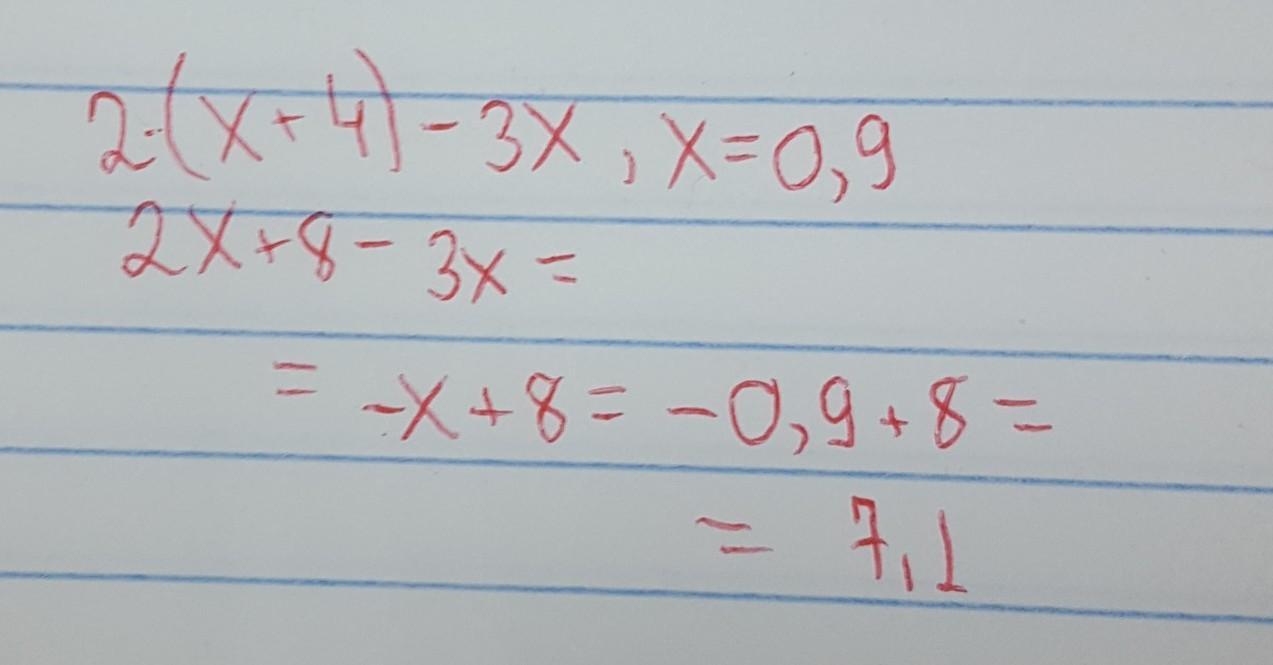 2·(x+4)-3x, x=0,9
2x+8-3x=
=-x+8=-0,9+8=
=7,1